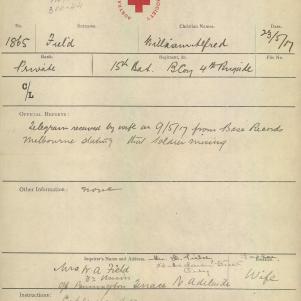 300-44
SOCIETY
No. Surname. Christian Names. Date.
1865 Field William Alfred 23/5/17
Rank. Regiment, &c. File No.
Private 15th Bat. B Coy 4th Brigade
C/L
OFFICIAL REPORTS:
Telegram received by wife on 9/5/17 from Base Records
Melbourne stating that soldier missing
Other Information: none
Inquirer's Name and Address:
City
Mrs W. A. Field Wife
Pennington Terrace N. Adelaide
Instructions: